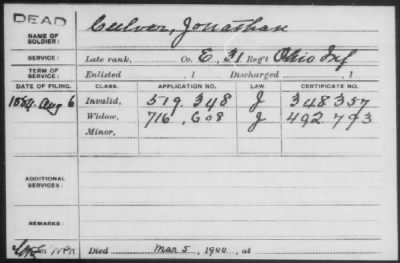 DEAD
NAME OF SOLDIER: Culver, Jonathan
SERVICE: Late rank, Co. E, 31 Reg't Ohio Inf
TERM OF SERVICE: Enlisted , 1 Discharged , 1
DATE OF FILING. CLASS. APPLICATION NO. LAW CERTIFICATE NO.
1884 Aug 6 Invalid, 519.348 J 348357
Widow, 716.608 J 492.793
Minor,
ADDITIONAL SERVICES:
REMARKS:
Died Mar 5, 1900, at